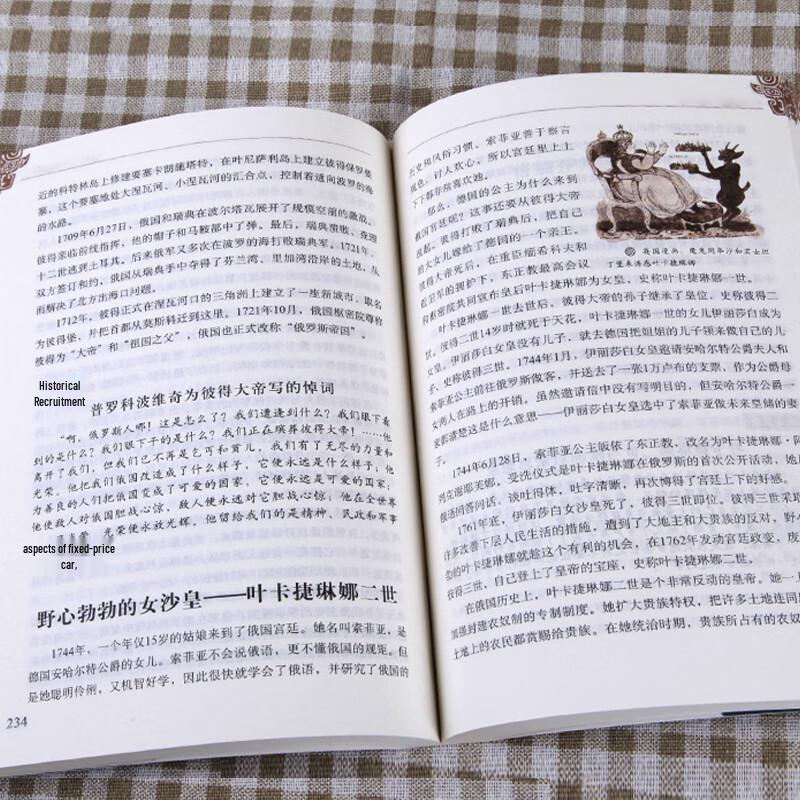 近的科特林岛上修建要塞卡朗施塔特，在叶尼萨利岛上建立彼得保罗要
塞，这个要塞地处大涅瓦河、小涅瓦河的汇合点，控制着通向波罗的海
的水路。
1709年6月27日，俄国和瑞典在波尔塔瓦展开了规模空前的激战。
彼得亲临前线指挥，他的帽子和马鞍都中了弹。最后，瑞典溃败，查理
十二世逃到土耳其。后来俄军又多次在波罗的海打败瑞典军。1721年，
双方签订和约，俄国从瑞典手中夺得了芬兰湾、里加湾沿岸的土地，从
而解决了北方出海口问题。
1712年，彼得正式在涅瓦河口的三角洲上建立了一座新城市，取名
为彼得堡，并把首都从莫斯科迁到这里。1721年10月，俄国枢密院尊称
彼得为“大帝”和“祖国之父”，俄国也正式改称“俄罗斯帝国”。
Historical
Recruitment
普罗科波维奇为彼得大帝写的悼词
“啊，俄罗斯人哪！这是怎么了？我们遭逢到什么？我们眼下看
到的是什么？我们眼下干的是什么？我们正在殡葬彼得大帝！……他
离开了我们，但我们已不再是乞丐和贫儿，我们有了无尽的力量和
光荣。他把我们俄国改造成了什么样子，它便永远是什么样子，他
为善良的人们把俄国变成了可爱的国家，它便永远是可爱的国家；
他使敌人对俄国胆战心惊，敌人便永远对它胆战心惊；他在全世界
光荣便永放光辉。他留给我们的是精神、民政和军事
aspects of fixed-price
car,
野心勃勃的女沙皇——叶卡捷琳娜二世
1744年，一个年仅15岁的姑娘来到了俄国宫廷。她名叫索菲亚，是
德国安哈尔特公爵的女儿。索菲亚不会说俄语，更不懂俄国的规矩。但
是她聪明伶俐，又机智好学，因此很快就学会了俄语，并研究了俄国的
234
历史和风俗习惯。索菲亚善于察言
观色，讨人欢心，所以宫廷里上上
下下都非常喜欢她。
那么，德国的公主为什么来到
俄国宫廷呢？这事还要从彼得大帝
说起。彼得打败了瑞典后，把自己
的大女儿嫁给了德国的一个亲王。
彼得大帝死后，在重臣缅希科夫和
近卫军的拥护下，东正教最高会议
和枢密院共同宣布皇后叶卡捷琳娜为女皇，史称叶卡捷琳娜一世。
叶卡捷琳娜一世去世后，彼得大帝的孙子继承了皇位，史称彼得二
世。彼得二世14岁时就死于天花，叶卡捷琳娜一世的女儿伊丽莎白成为
女皇。伊丽莎白女皇没有儿子，就去德国把姐姐的儿子领来做自己的儿
子，史称彼得三世。1744年1月，伊丽莎白女皇邀请安哈尔特公爵夫人和
索菲亚公主前往俄罗斯做客，并送去了一张1万卢布的支票，作为公爵母
女两人在路上的开销。虽然邀请信中没有写明目的，但安哈尔特公爵一
家都清楚这是什么意思——伊丽莎白女皇选中了索菲亚做未来皇储的妻
子。
1744年6月28日，索菲亚公主皈依了东正教，改名为叶卡捷琳娜·
列克谢耶芙娜。受洗仪式是叶卡捷琳娜在俄罗斯的首次公开活动，她
很活问答问话，谈吐得体，吐字清晰，再次博得了宫廷上下的好感。
1761年底，伊丽莎白女沙皇死了，彼得三世即位。彼得三世采取
许多改善下层人民生活的措施，遭到了大地主和大贵族的反对，野
勃的叶卡捷琳娜就趁这个有利的机会，在1762年发动宫廷政变，废
彼得三世，自己登上了皇帝的宝座，史称叶卡捷琳娜二世。
在俄国历史上，叶卡捷琳娜二世是个非常反动的皇帝。她一上
加强封建农奴制的专制制度。她扩大贵族特权，把许多土地连同
土地上的农民都赏赐给贵族。在她统治时期，贵族所占有的农奴
英国漫画：魔鬼用华沙和君士坦
丁堡来诱惑叶卡捷琳娜